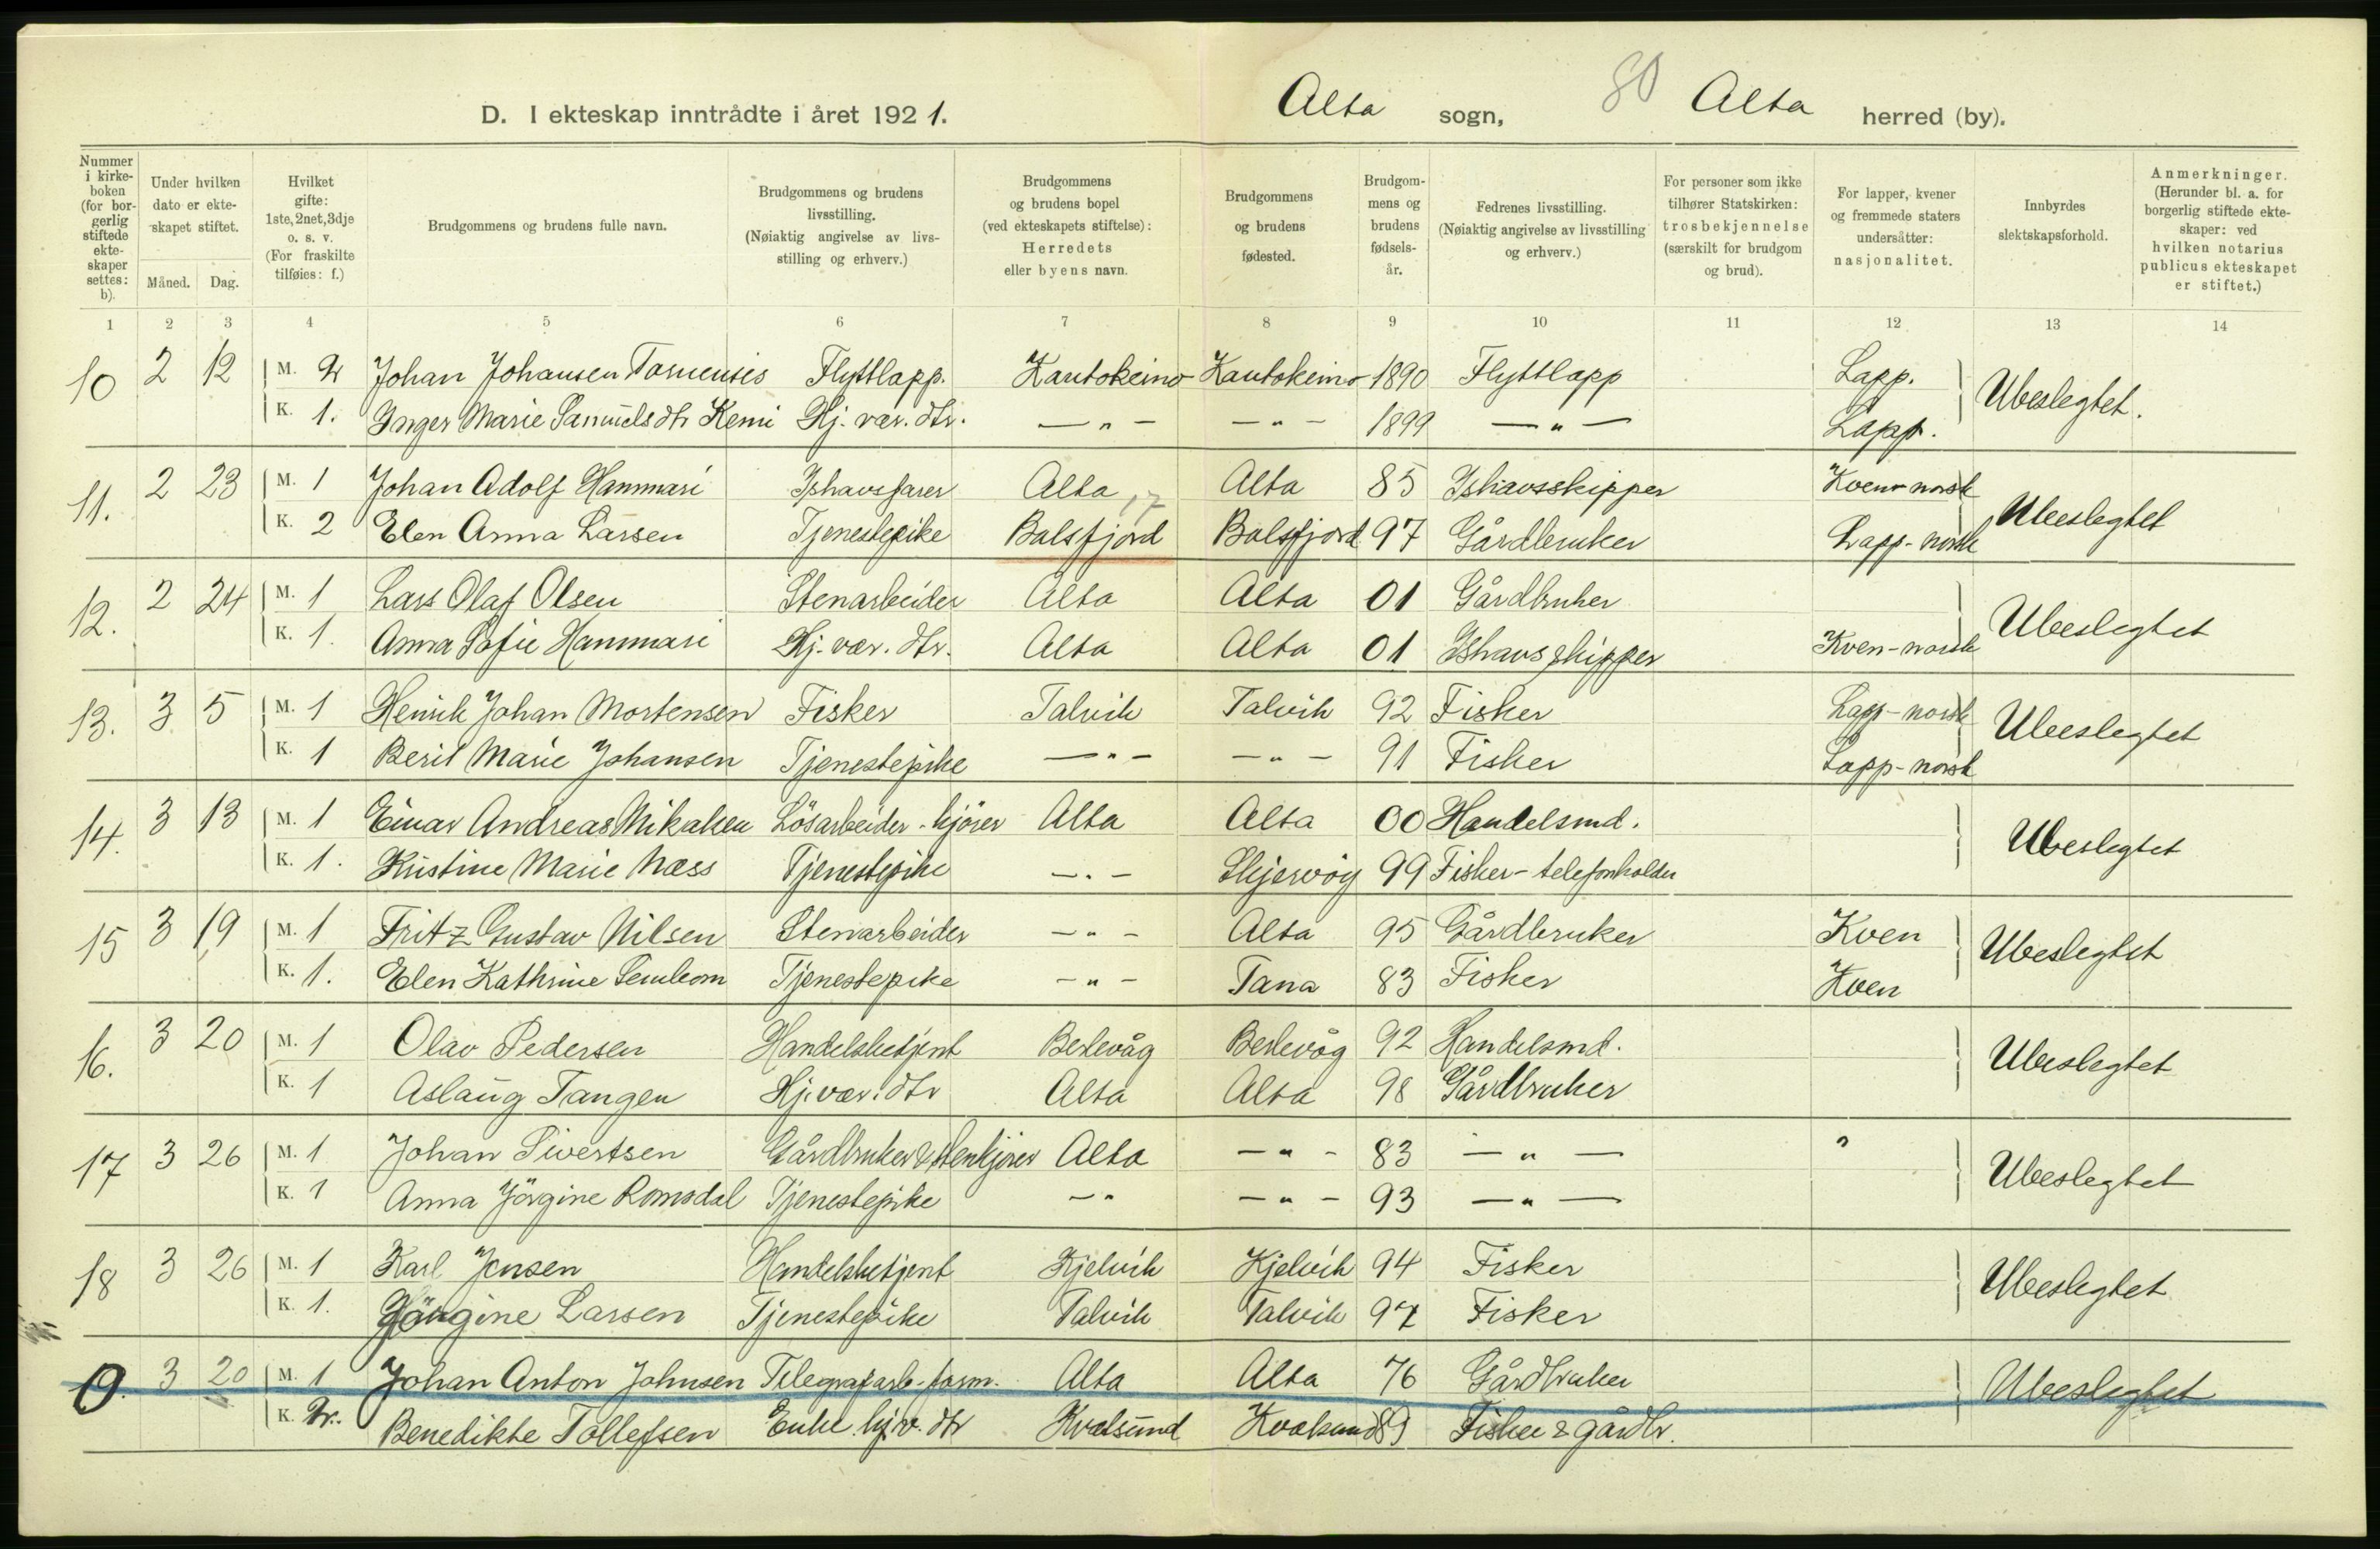 80
D. I ekteskap inntrådte i året 1921. Alta sogn, Alta herred (by).
Nummer i kirkeboken (for borgerlig stiftede ekteskaper settes: b).
Under hvilken dato er ekteskapet stiftet.
Måned. Dag.
Hvilket gifte: 1ste, 2net, 3dje o. s. v. (For fraskilte tilføies: f.)
Brudgommens og brudens fulle navn.
Brudgommens og brudens livsstilling. (Nøiaktig angivelse av livsstilling og erhverv.)
Brudgommens og brudens bopel (ved ekteskapets stiftelse): Herredets eller byens navn.
Brudgommens og brudens fødested.
Brudgommens og brudens fødselsår.
Fedrenes livsstilling. (Nøiaktig angivelse av livsstilling og erhverv.)
For personer som ikke tilhører Statskirken: trosbekjennelse (særskilt for brudgom og brud).
For lapper, kvener og fremmede staters undersåtter: nasjonalitet.
Innbyrdes slektskapsforhold.
Anmerkninger. (Herunder bl. a. for borgerlig stiftede ekteskaper: ved hvilken notarius publicus ekteskapet er stiftet.)
1 2 3 4 5 6 7 8 9 10 11 12 13 14
10 2 12 M. 2 Johan Johansen Tornensis Flyttlapp. Kautokeino Kautokeino 1890 Flyttlapp Lapp. Ubeslegtet.
K. 1. Inger Marie Samuelsdtr Kemi Hj. vær. dtr. — " — — " — 1899 — " — Lapp.
11. 2 23 M. 1 Johan Adolf Hammari Ishavsfarer Alta 17 Alta 85 Ishavsskipper Kven-norsk Ubeslegtet
K. 2 Elen Anna Larsen Tjenestepike Balsfjord Balsfjord 97 Gårdbruker Lapp-norsk
12. 2 24 M. 1 Lars Olaf Olsen Stenarbeider Alta Alta 01 Gårdbruker Ubeslegtet
K. 1. Anna Sofie Hammari Hj. vær. dtr. Alta Alta 01 Ishavsskipper Kven-norsk
13. 3 5 M. 1 Henrik Johan Mortensen Fisker Talvik Talvik 92 Fisker Lapp-norsk Ubeslegtet
K. 1 Berit Marie Johansen Tjenestepike — " — — " — 91 Fisker Lapp-norsk
14. 3 13 M. 1 Einar Andreas Mikalsen Lösarbeider - kjörer Alta Alta 00 Handelsmd. Ubeslegtet
K. 1. Kristine Marie Næss Tjenestepike — " — Skjervöy 99 Fisker - telefonholder
15 3 19 M. 1 Fritz Gustav Nilsen Stenarbeider — " — Alta 95 Gårdbruker Kven Ubeslegtet
K. 1. Elen Kathrine Tjenestepike — " — Tana 83 Fisker Kven
16. 3 20 M. 1 Olav Pedersen Handelsbetjent Berlevåg Berlevåg 92 Handelsmd. Ubeslegtet
K. 1 Aslaug Tangen Hj. vær. dtr Alta Alta 98 Gårdbruker
17 3 26 M. 1 Johan Sivertsen Gårdbruker & stenkjörer Alta — " — 83 — " — Ubeslegtet
K. 1 Anna Jörgine Romsdal Tjenestepike — " — " — 93 — " —
18 3 26 M. 1 Karl Jensen Handelsbetjent Kjelvik Kjelvik 94 Fisker Ubeslegtet
K. 1. Jörgine Larsen Tjenestepike Talvik Talvik 97 Fisker
0. 3 20 M. 1 Johan Anton Johnsen Telegrafarb.-form. Alta Alta 76 Gårdbruker Ubeslegtet
K. 2. Benedikte Tollefsen Enke hj. v. dtr Kvalsund Kvalsund 89 Fisker & gårdbr.